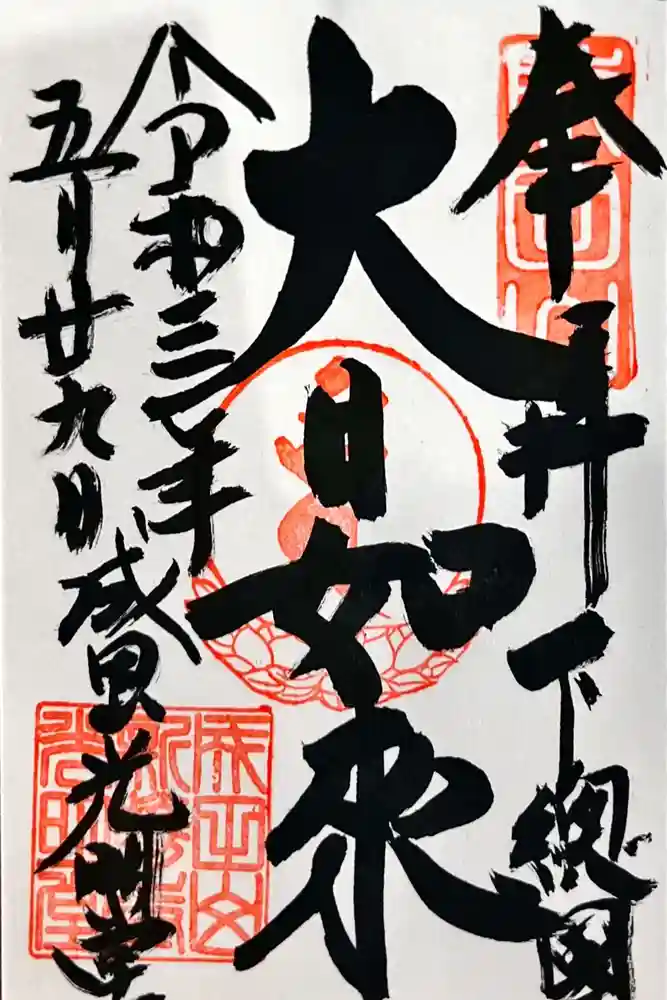 奉拝 下総国
大日如来
令和三年
五月廿九日 成田山 光明堂